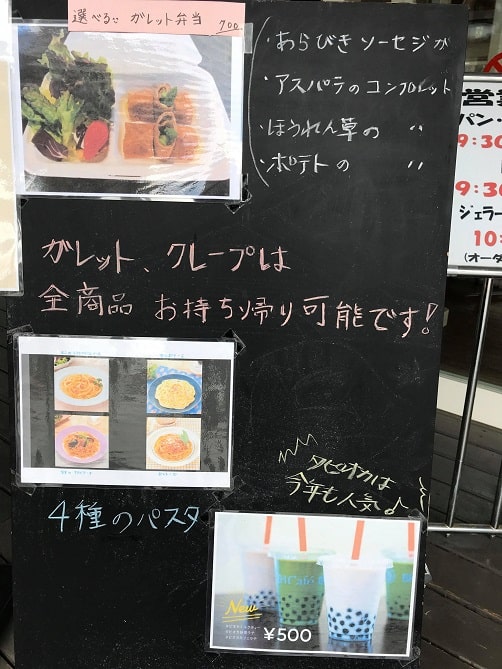 選べる ガレット弁当 700.
・あらびきソーセジガ
・アスパラのコンプレット
・ほうれん草の 〃
・ポテトの 〃
ガレット、クレープは
全商品 お持ち帰り可能です!
4種のパスタ
タピオカは
今年も人気♪
New
¥500
営業
パン・
9:30
9:30
ジェラー
10:
(オーダ